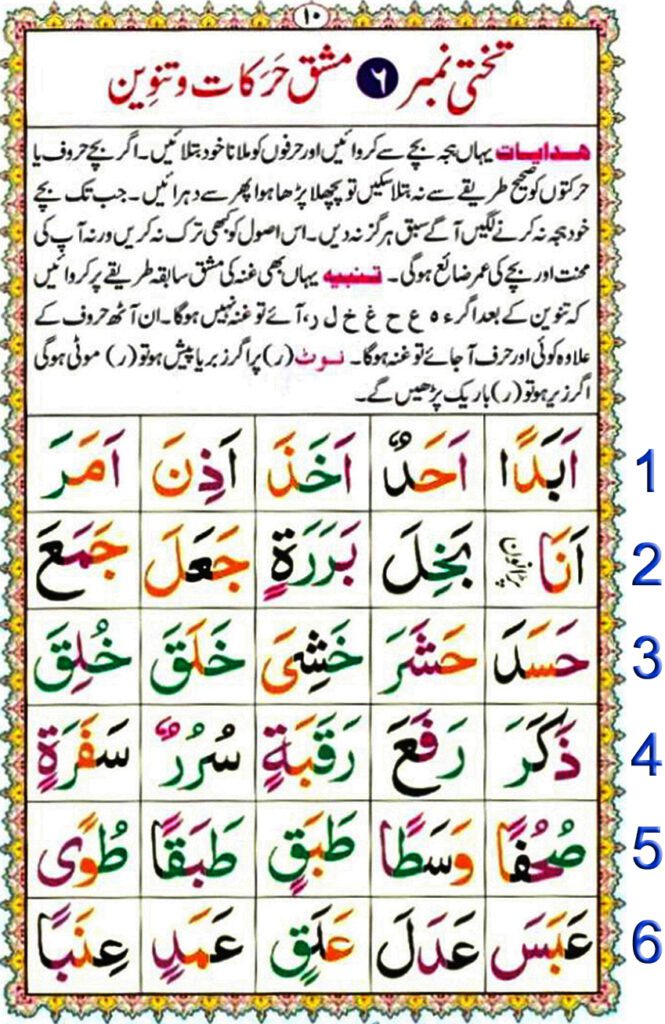 ۱۰
تختی نمبر ۶ مشق حَرَکات و تنوِین
ھدایات یہاں ہجہ بچے سے کروائیں اور حرفوں کو ملانا خود بتلائیں۔ اگر بچے حروف یا
حرکتوں کو صحیح طریقے سے نہ بتلا سکیں تو پچھلا پڑھا ہوا پھر سے دہرائیں۔ جب تک بچے
خود ہجہ نہ کرنے لگیں آگے سبق ہرگز نہ دیں۔ اس اصول کو کبھی ترک نہ کریں ورنہ آپ کی
محنت اور بچے کی عمر ضائع ہوگی۔ تنبیه یہاں بھی غنہ کی مشق سابقہ طریقے پر کروائیں
کہ تنوین کے بعد اگر ء ہ ع ح غ خ ل ر، آئے تو غنہ نہیں ہوگا۔ ان آٹھ حروف کے
علاوہ کوئی اور حرف آجائے تو غنہ ہوگا۔ نوٹ (ر) پر اگر زبر یا پیش ہو تو (ر) موٹی ہوگی
اگر زیر ہو تو (ر) باریک پڑھیں گے۔
اَبَدًا اَحَدٌ اَخَذَ اَذِنَ اَمَرَ 1
اَنَا بَخِلَ بَرَرَةٍ جَعَلَ جَمَعَ 2
حَسَدَ حَشَرَ خَشِىَ خَلَقَ خُلِقَ 3
ذَكَرَ رَفَعَ رَقَبَةٍ سُرُرٌ سَفَرَةٍ 4
صُحُفًا وَسَطًا طَبَقٍ طَبَقًا طُوًى 5
عَبَسَ عَدَلَ عَلَقٍ عَمَدٍ عِنَبًا 6